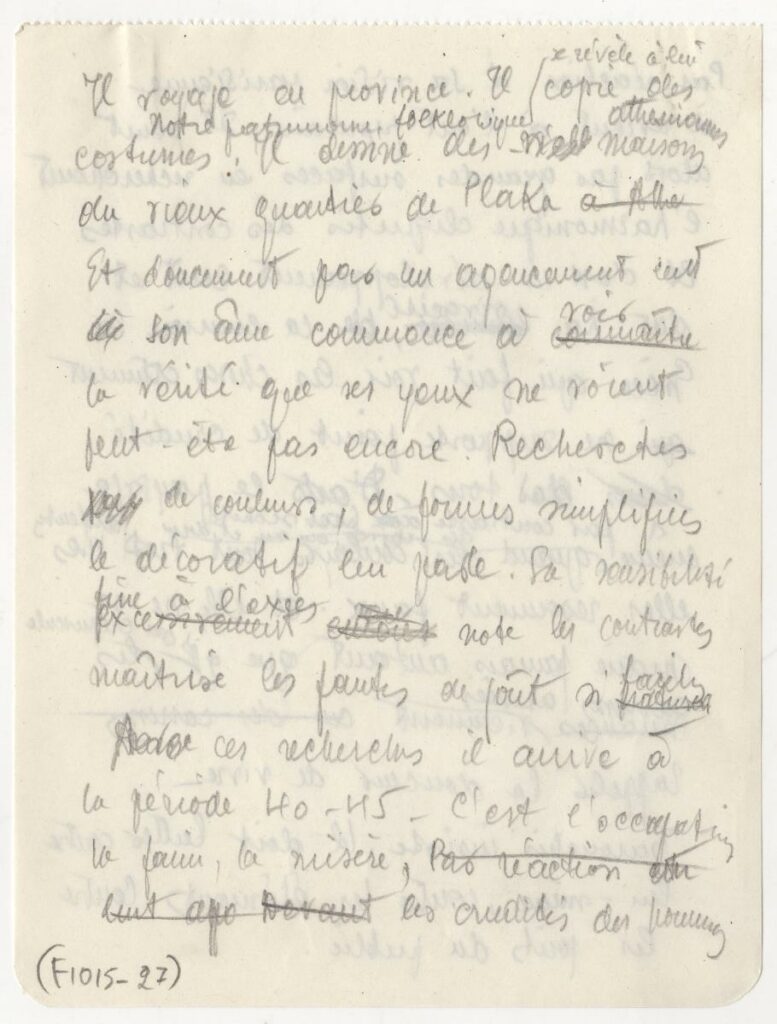 se révèle à lui
Il voyage en province. Il copie des
notre patrimoine folklorique athéniennes
costumes, Il dessine des maisons
du vieux quartier de Plaka à
Et doucement par un agencement lent
son âme commence à connaître
voir
la vérité que ses yeux ne voient
peut-être pas encore. Recherches
de couleurs, de formes simplifiées
le décoratif lui parle. Sa sensibilité
fine à l'excès
excessivement note les contrastes
maîtrise les fautes de goût si faciles
ces recherches il arrive à
la période 40-45 - C'est l'occupation
la faim, la misère, Par réaction
Devant les crudités des hommes
(F1015-27)